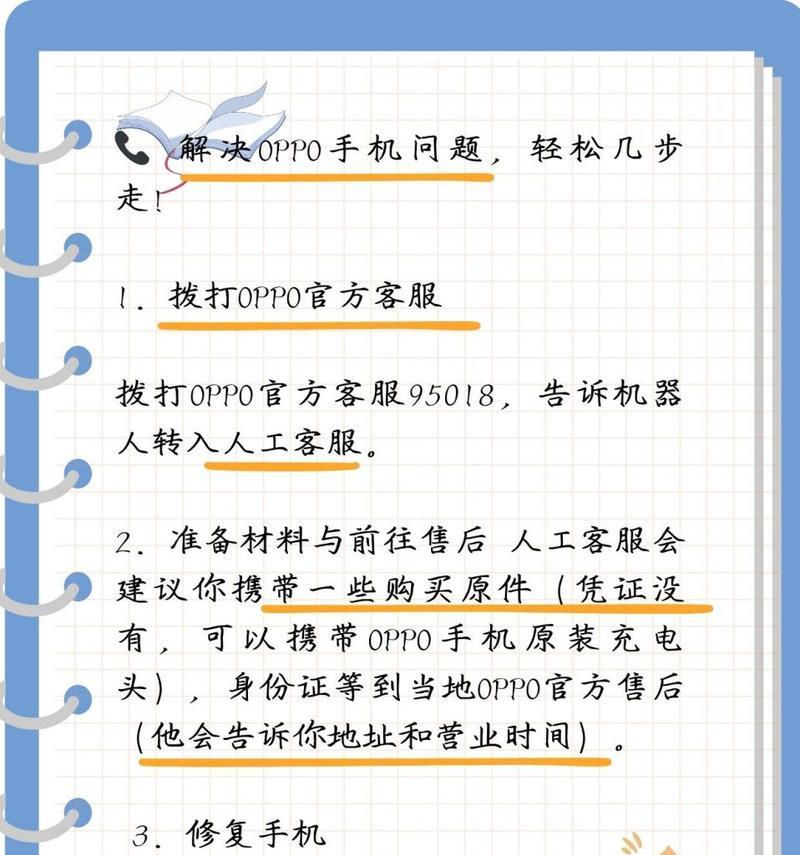 解决OPPO手机问题，轻松几步
走！
1. 拨打OPPO官方客服
拨打OPPO官方客服95018，告诉机器
人转入人工客服。
2. 准备材料与前往售后 人工客服会
建议你携带一些购买原件（凭证没
有，可以携带OPPO手机原装充电
头），身份证等到当地OPPO官方售后
（他会告诉你地址和营业时间）。
3. 修复手机